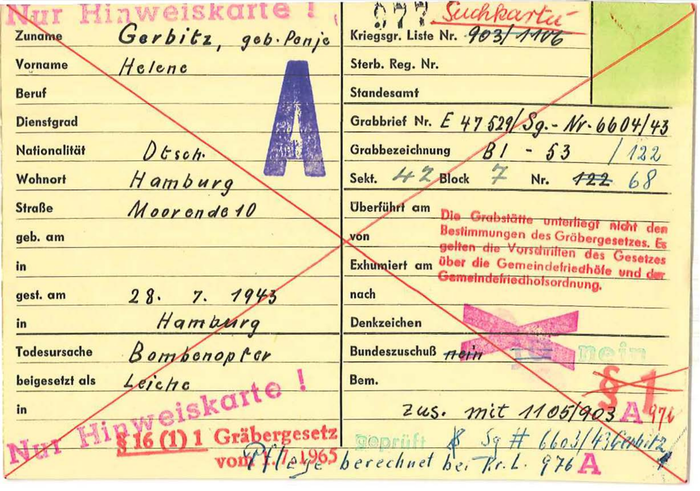 Nur Hinweiskarte !
Zuname Gerbitz, geb. Penje
Vorname Helene
Beruf
Dienstgrad
Nationalität Dtsch.
Wohnort Hamburg
Straße Moorende 10
geb. am
in
gest. am 28. 7. 1943
in Hamburg
Todesursache Bombenopfer
beigesetzt als Leiche
in
Nur Hinweiskarte !
§ 16 (1) 1 Gräbergesetz
vom 1.7.1965
A
Suchkartei
Kriegsgr. Liste Nr. 903/1106
Sterb. Reg. Nr.
Standesamt
Grabbrief Nr. E 47529/Sg.-Nr. 6604/43
Grabbezeichnung BI - 53 /122
Sekt. 42 Block 7 Nr. 122 68
Überführt am
von
Exhumiert am
nach
Die Grabstätte unterliegt nicht den
Bestimmungen des Gräbergesetzes. Es
gelten die Vorschriften des Gesetzes
über die Gemeindefriedhöfe und der
Gemeindefriedhofsordnung.
Denkzeichen
Bundeszuschuß nein nein
Bem. § 1
zus. mit 1105/903 A 976
geprüft Sg # 6603/43 Gerbitz
Pflege berechnet bei Kr. L. 976 A